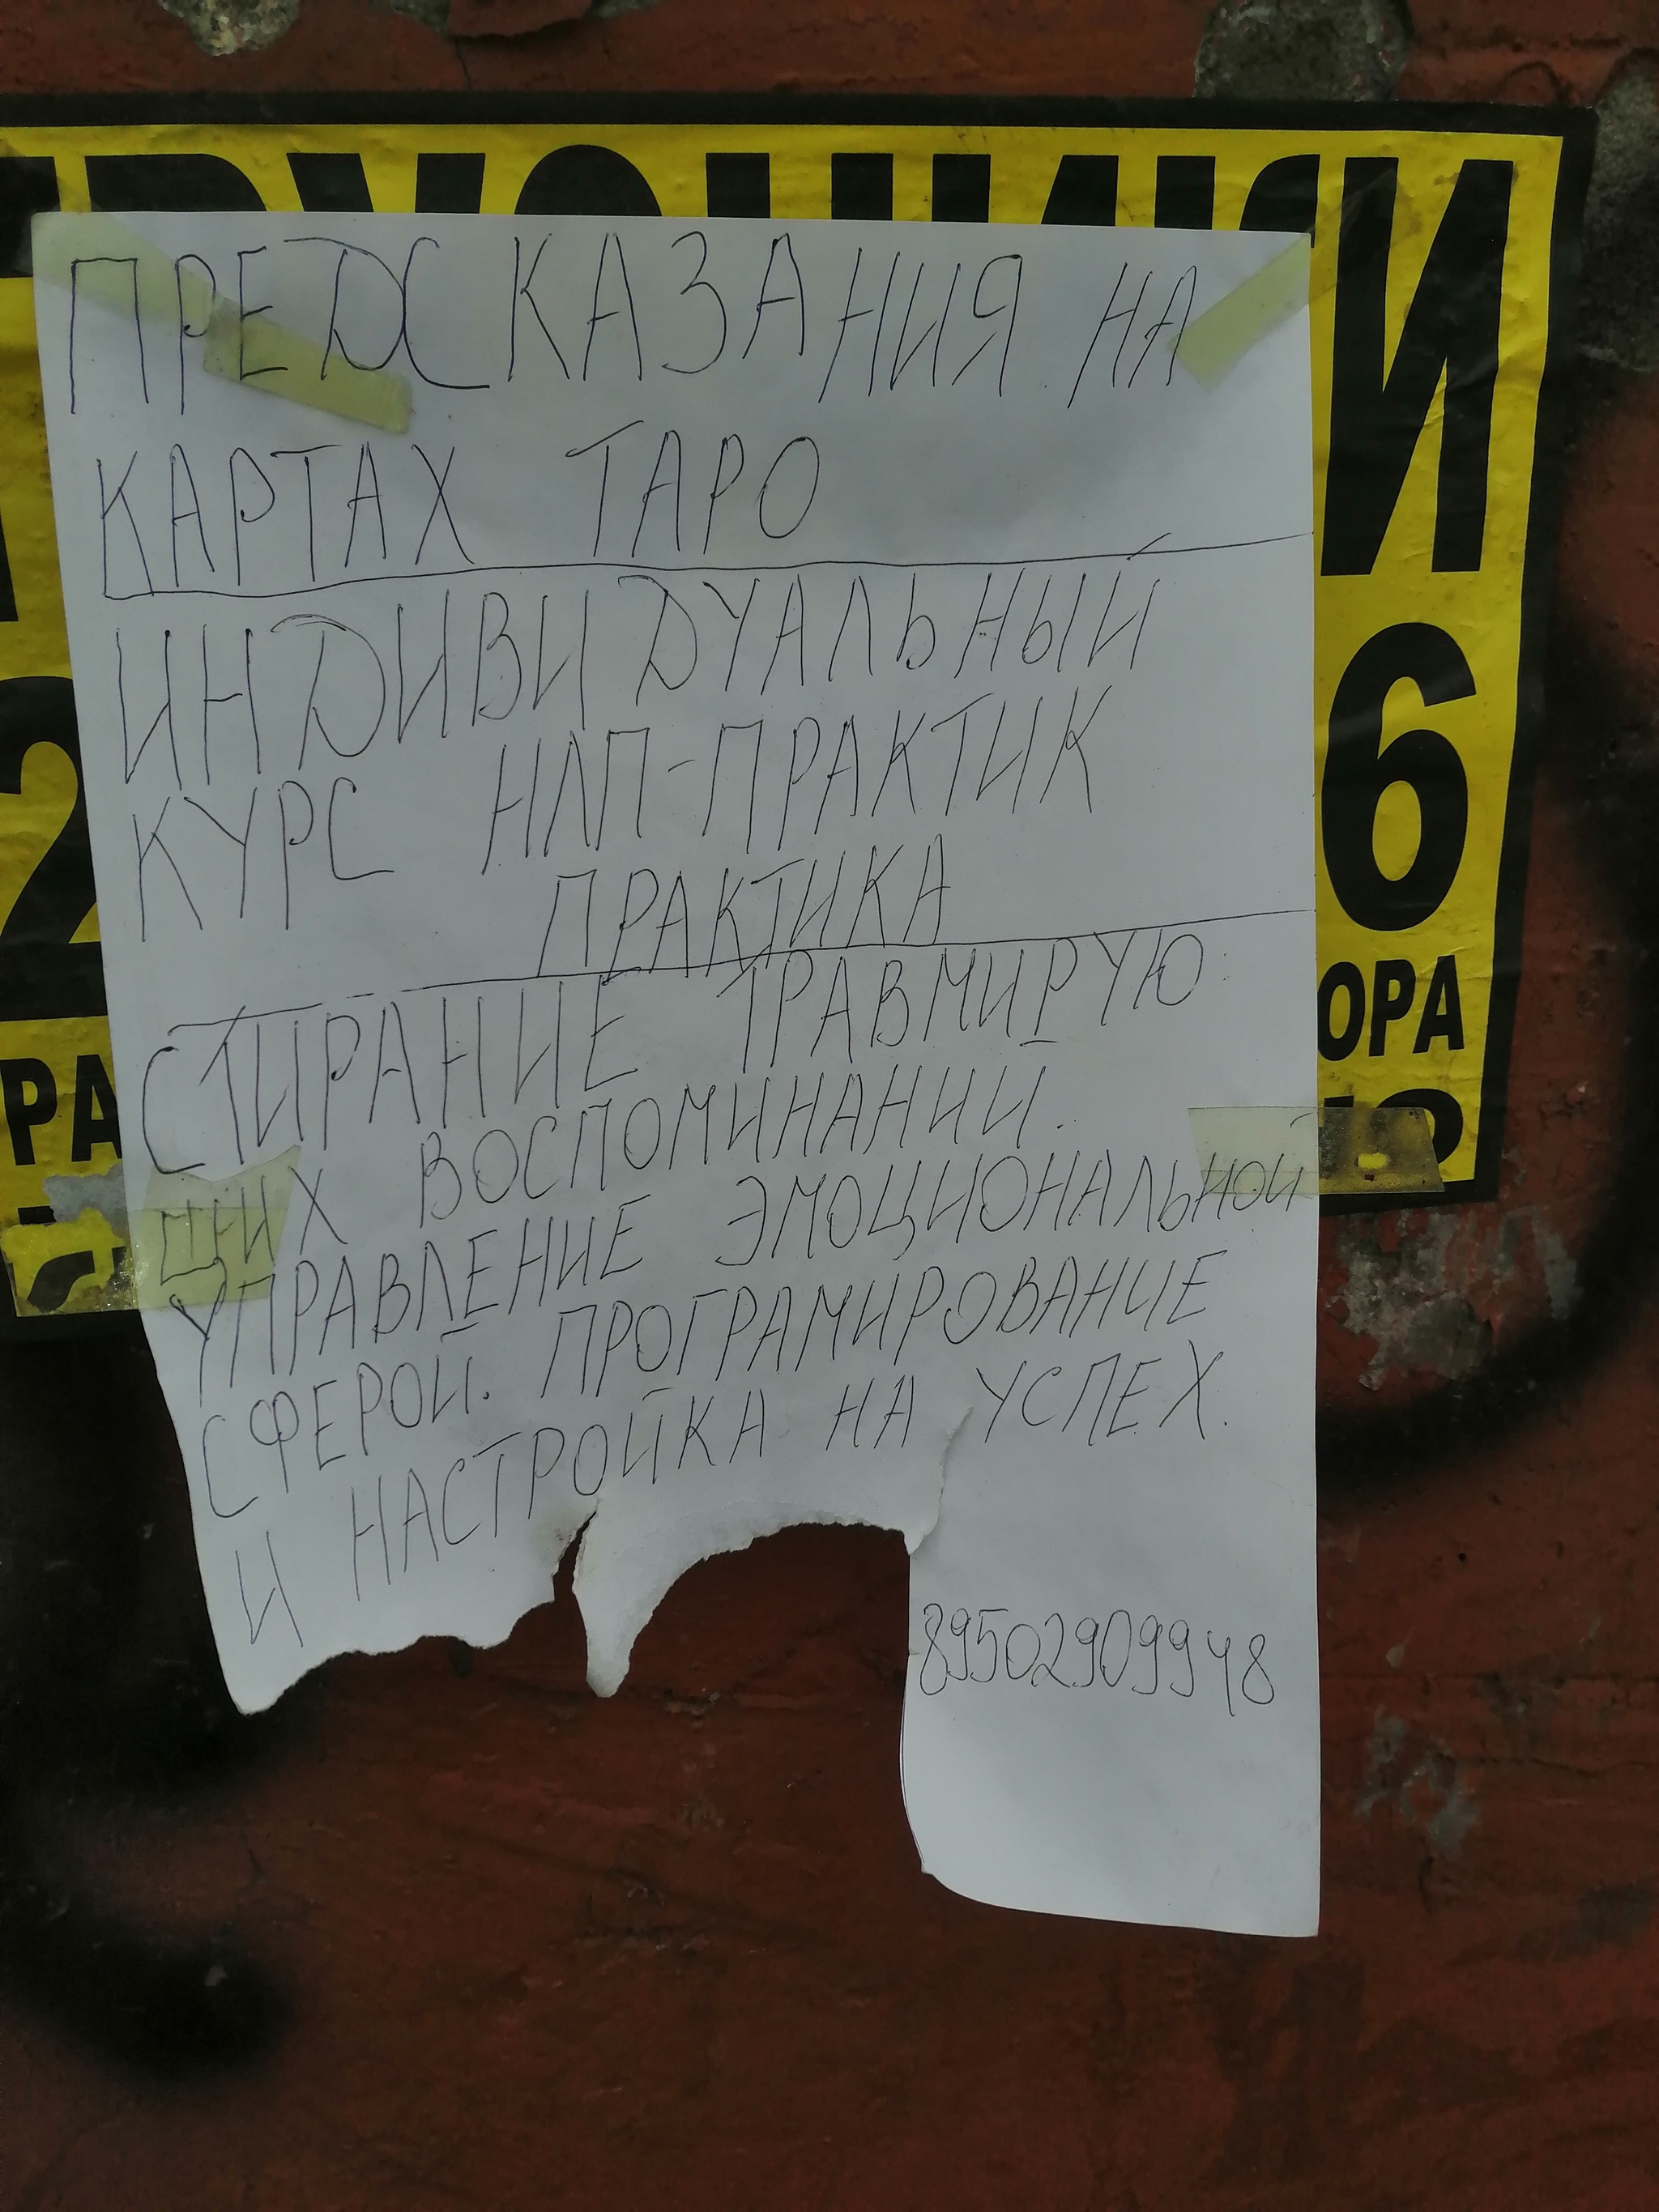 ПРЕДСКАЗАНИЯ НА
КАРТАХ ТАРО
ИНДИВИДУАЛЬНЫЙ
КУРС НЛП-ПРАКТИК
ПРАКТИКА
СТИРАНИЕ ТРАВМИРУЮ
ЩИХ ВОСПОМИНАНИЙ.
УПРАВЛЕНИЕ ЭМОЦИОНАЛЬНОЙ
СФЕРОЙ. ПРОГРАМИРОВАНИЕ
И НАСТРОЙКА НА УСПЕХ.
89502909948
2 6
РА ОРА